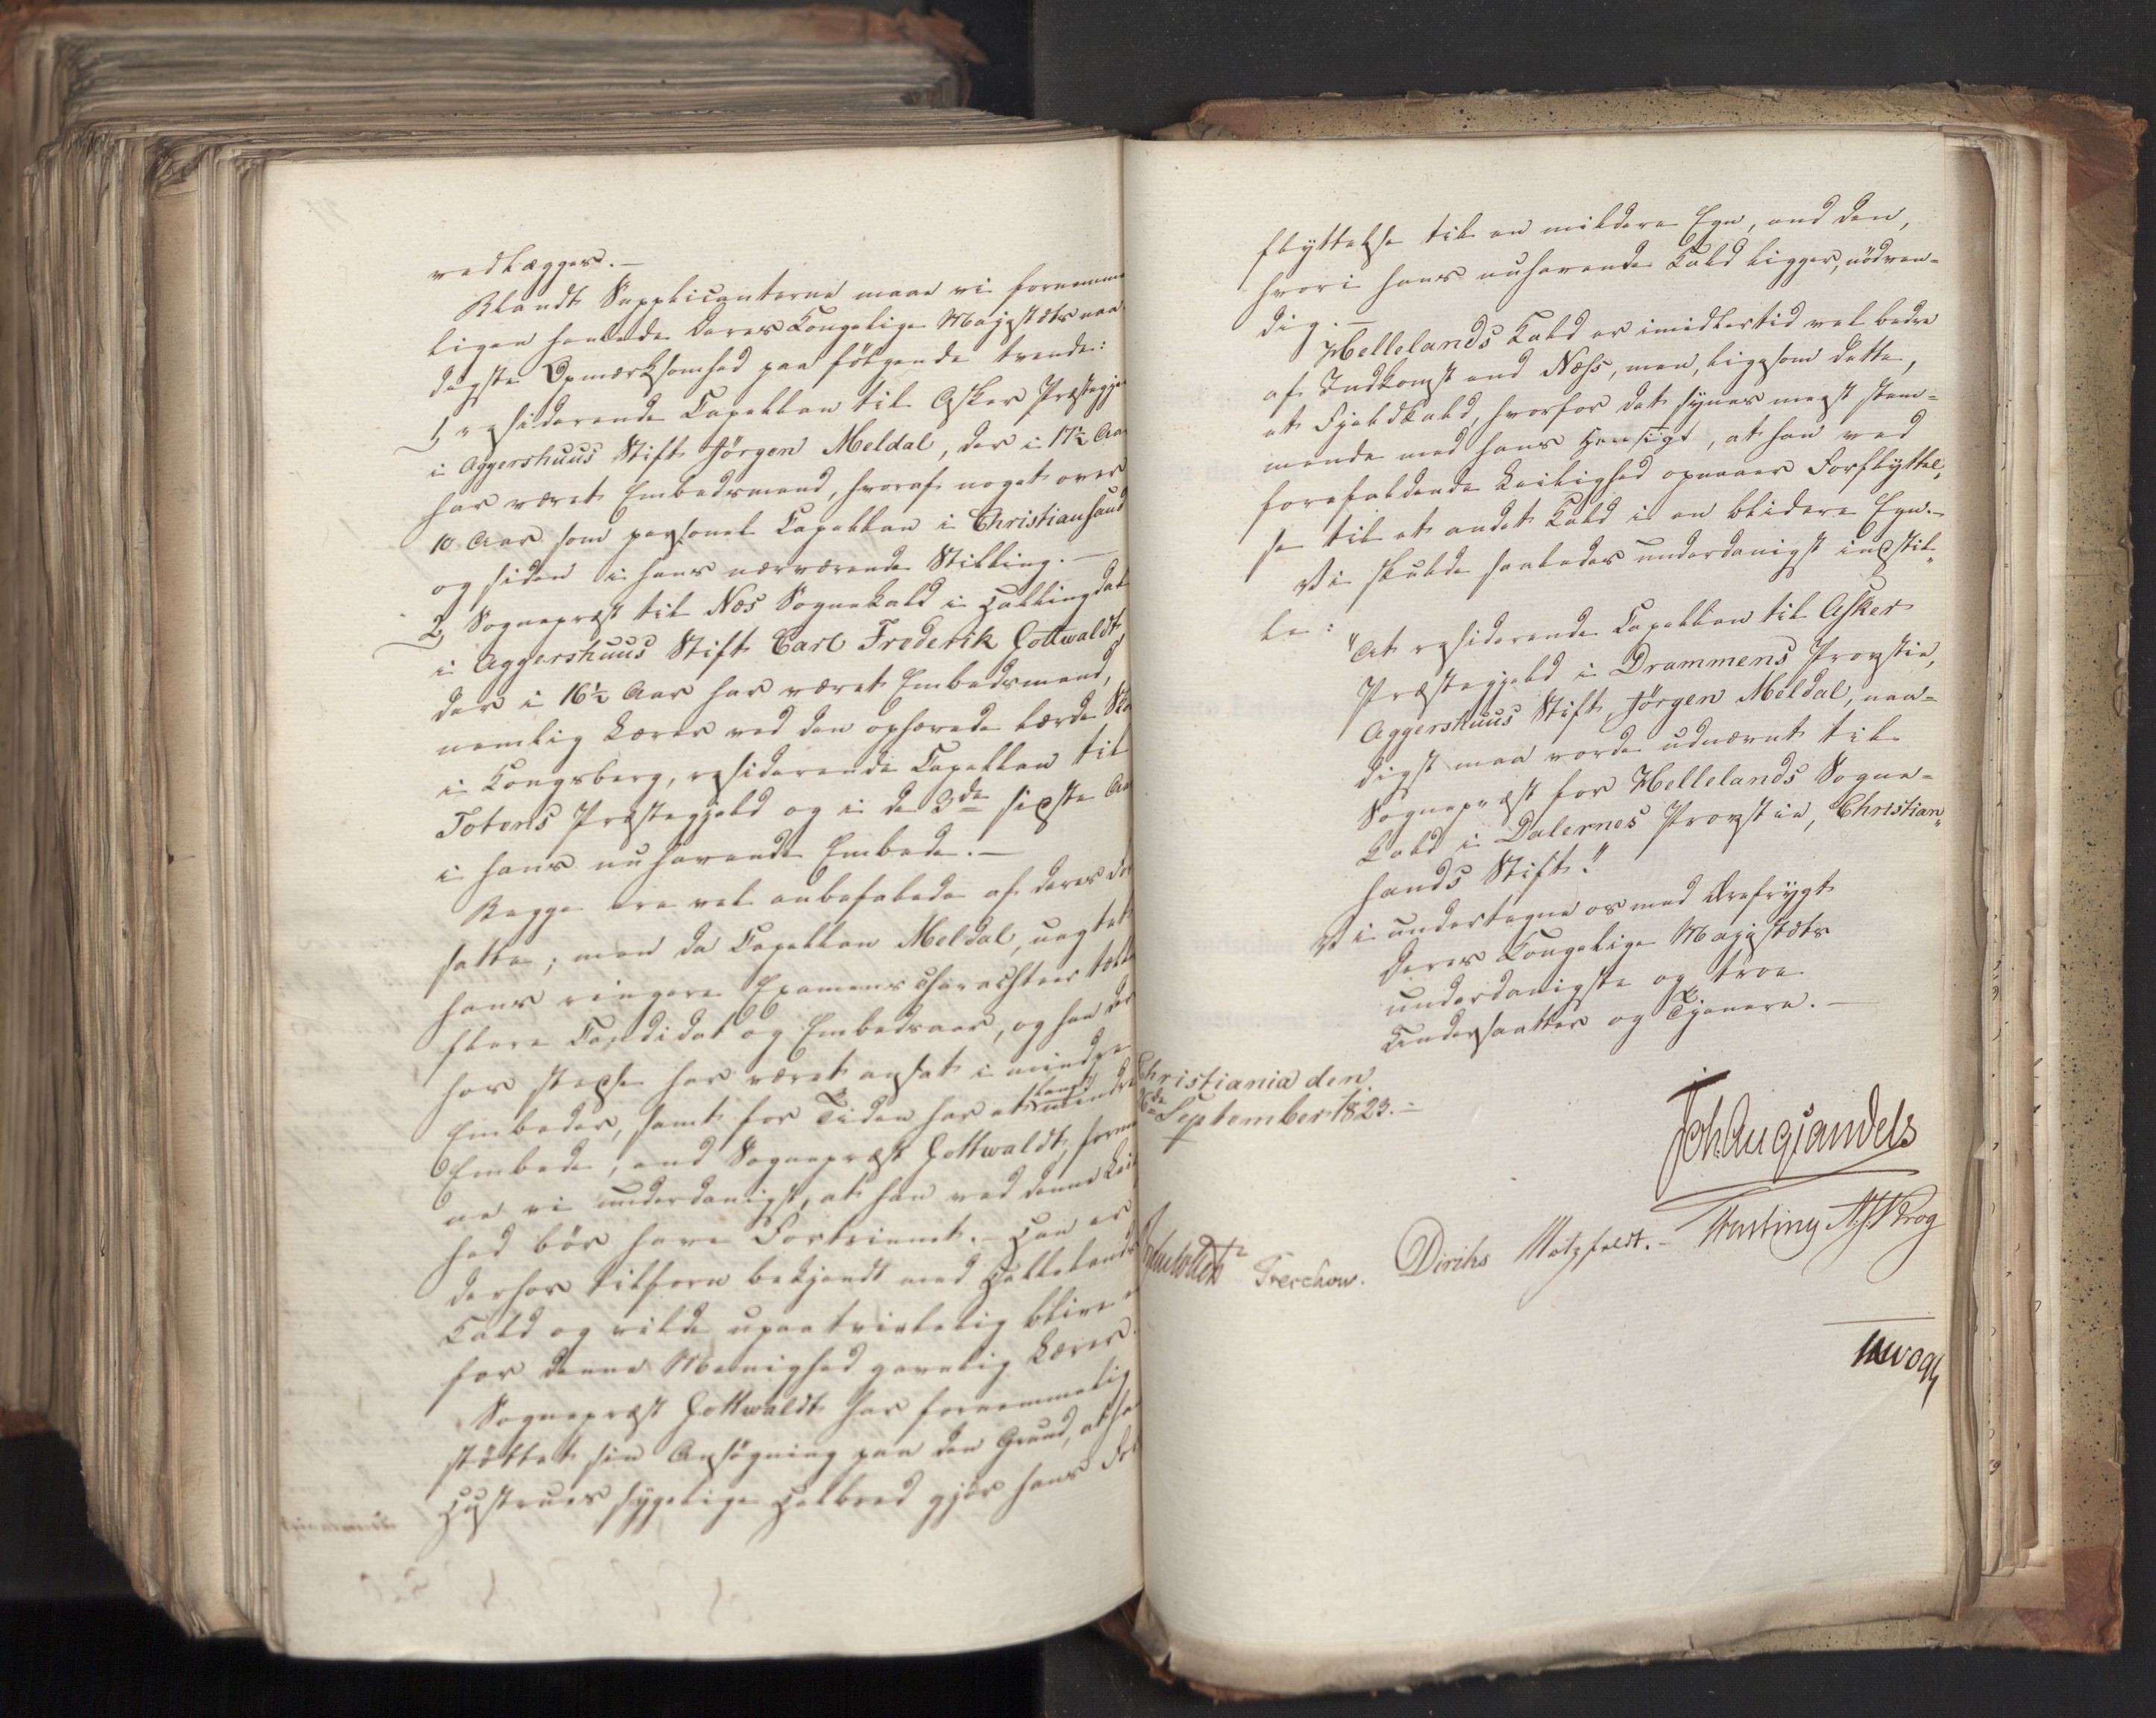 vedlægges.—
Blandt Supplicanterne maae vi fornemme
ligen henlede Deres Kongelige Majestæts naa-
digste Opmærksomhed paa følgende tvende:
1, residerende Capellan til Asker Præstegje
i Aggershuus Stift Jörgen Meldal, der i 17½ Aar
har været Embedsmand, hvoraf noget over
10 Aar som personel Capellan i Christiansand
og siden i hans nærværende Stilling.—
2, Sognepræst til Næs Sognekald i Hallingdal
i Aggershuus Stift Carl Frederik Gottwaldt,
der i 16½ Aar har været Embedsmand,
nemlig Lærer ved den ophævede lærde Sko
i Kongsberg, residerende Capellan til
Totens Præstegjeld og i de 3de sidste Aar
i hans nuhavende Embede.—
Begge ere vel anbefalede af deres Fore
satte; men da Capellan Meldal, uagtet
hans ringere Examens Charachteer tæller
flere Candidat og Embedsaar, og han der
hos stedse har været ansat i mindre
Embeder, samt for Tiden har et langt mindre
Embede, end Sognepræst Gottwaldt, forme
ne vi underdanigst, at han ved denne Lei
hed bør have Fortrinnet.— Han er
derhos tilforn bekjendt med Hellelands
Kald og vilde upaatvivlelig blive
for denne Menighed gavnlig Lærer.
Sognepræst Gottwaldt har fornemmelig
støttet sin Ansøgning paa den Grund, at ha
Hustrues sygelige Helbred gjør hans For
flyttelse til en mildere Egn, end den,
hvori hans nuhavende Kald ligger, nödven-
dig.—
Hellelands Kald er imidlertid vel bedre
af Indkomst end Næss, men, ligesom dette,
et Fjeldkald, hvorfor det synes meest stem-
mende med hans Hensigt, at han ved
forefaldende Leilighed opnaaer Forflyttel-
se til et andet Kald i en blidere Egn.—
Vi skulde saaledes underdanigst indstil-
le:
"At residerende Capellan til Asker
Præstegjeld i Drammens Provstie,
Aggershuus Stift, Jörgen Meldal, naa-
digst maa vorde udnævnt til
Sognepræst for Hellelands Sogne-
kald i Dalernes Provstie, Christian-
sands Stift."
Vi undertegne os med Ærefrygt
Deres Kongelige Majestæts
underdanigste og troe
Undersaatter og Tjenere.—
Christiania den
26de September 1823.—
Joh. Aug. Sandels
Treschow. Diriks Motzfeldt.— Fasting A. S. Krog